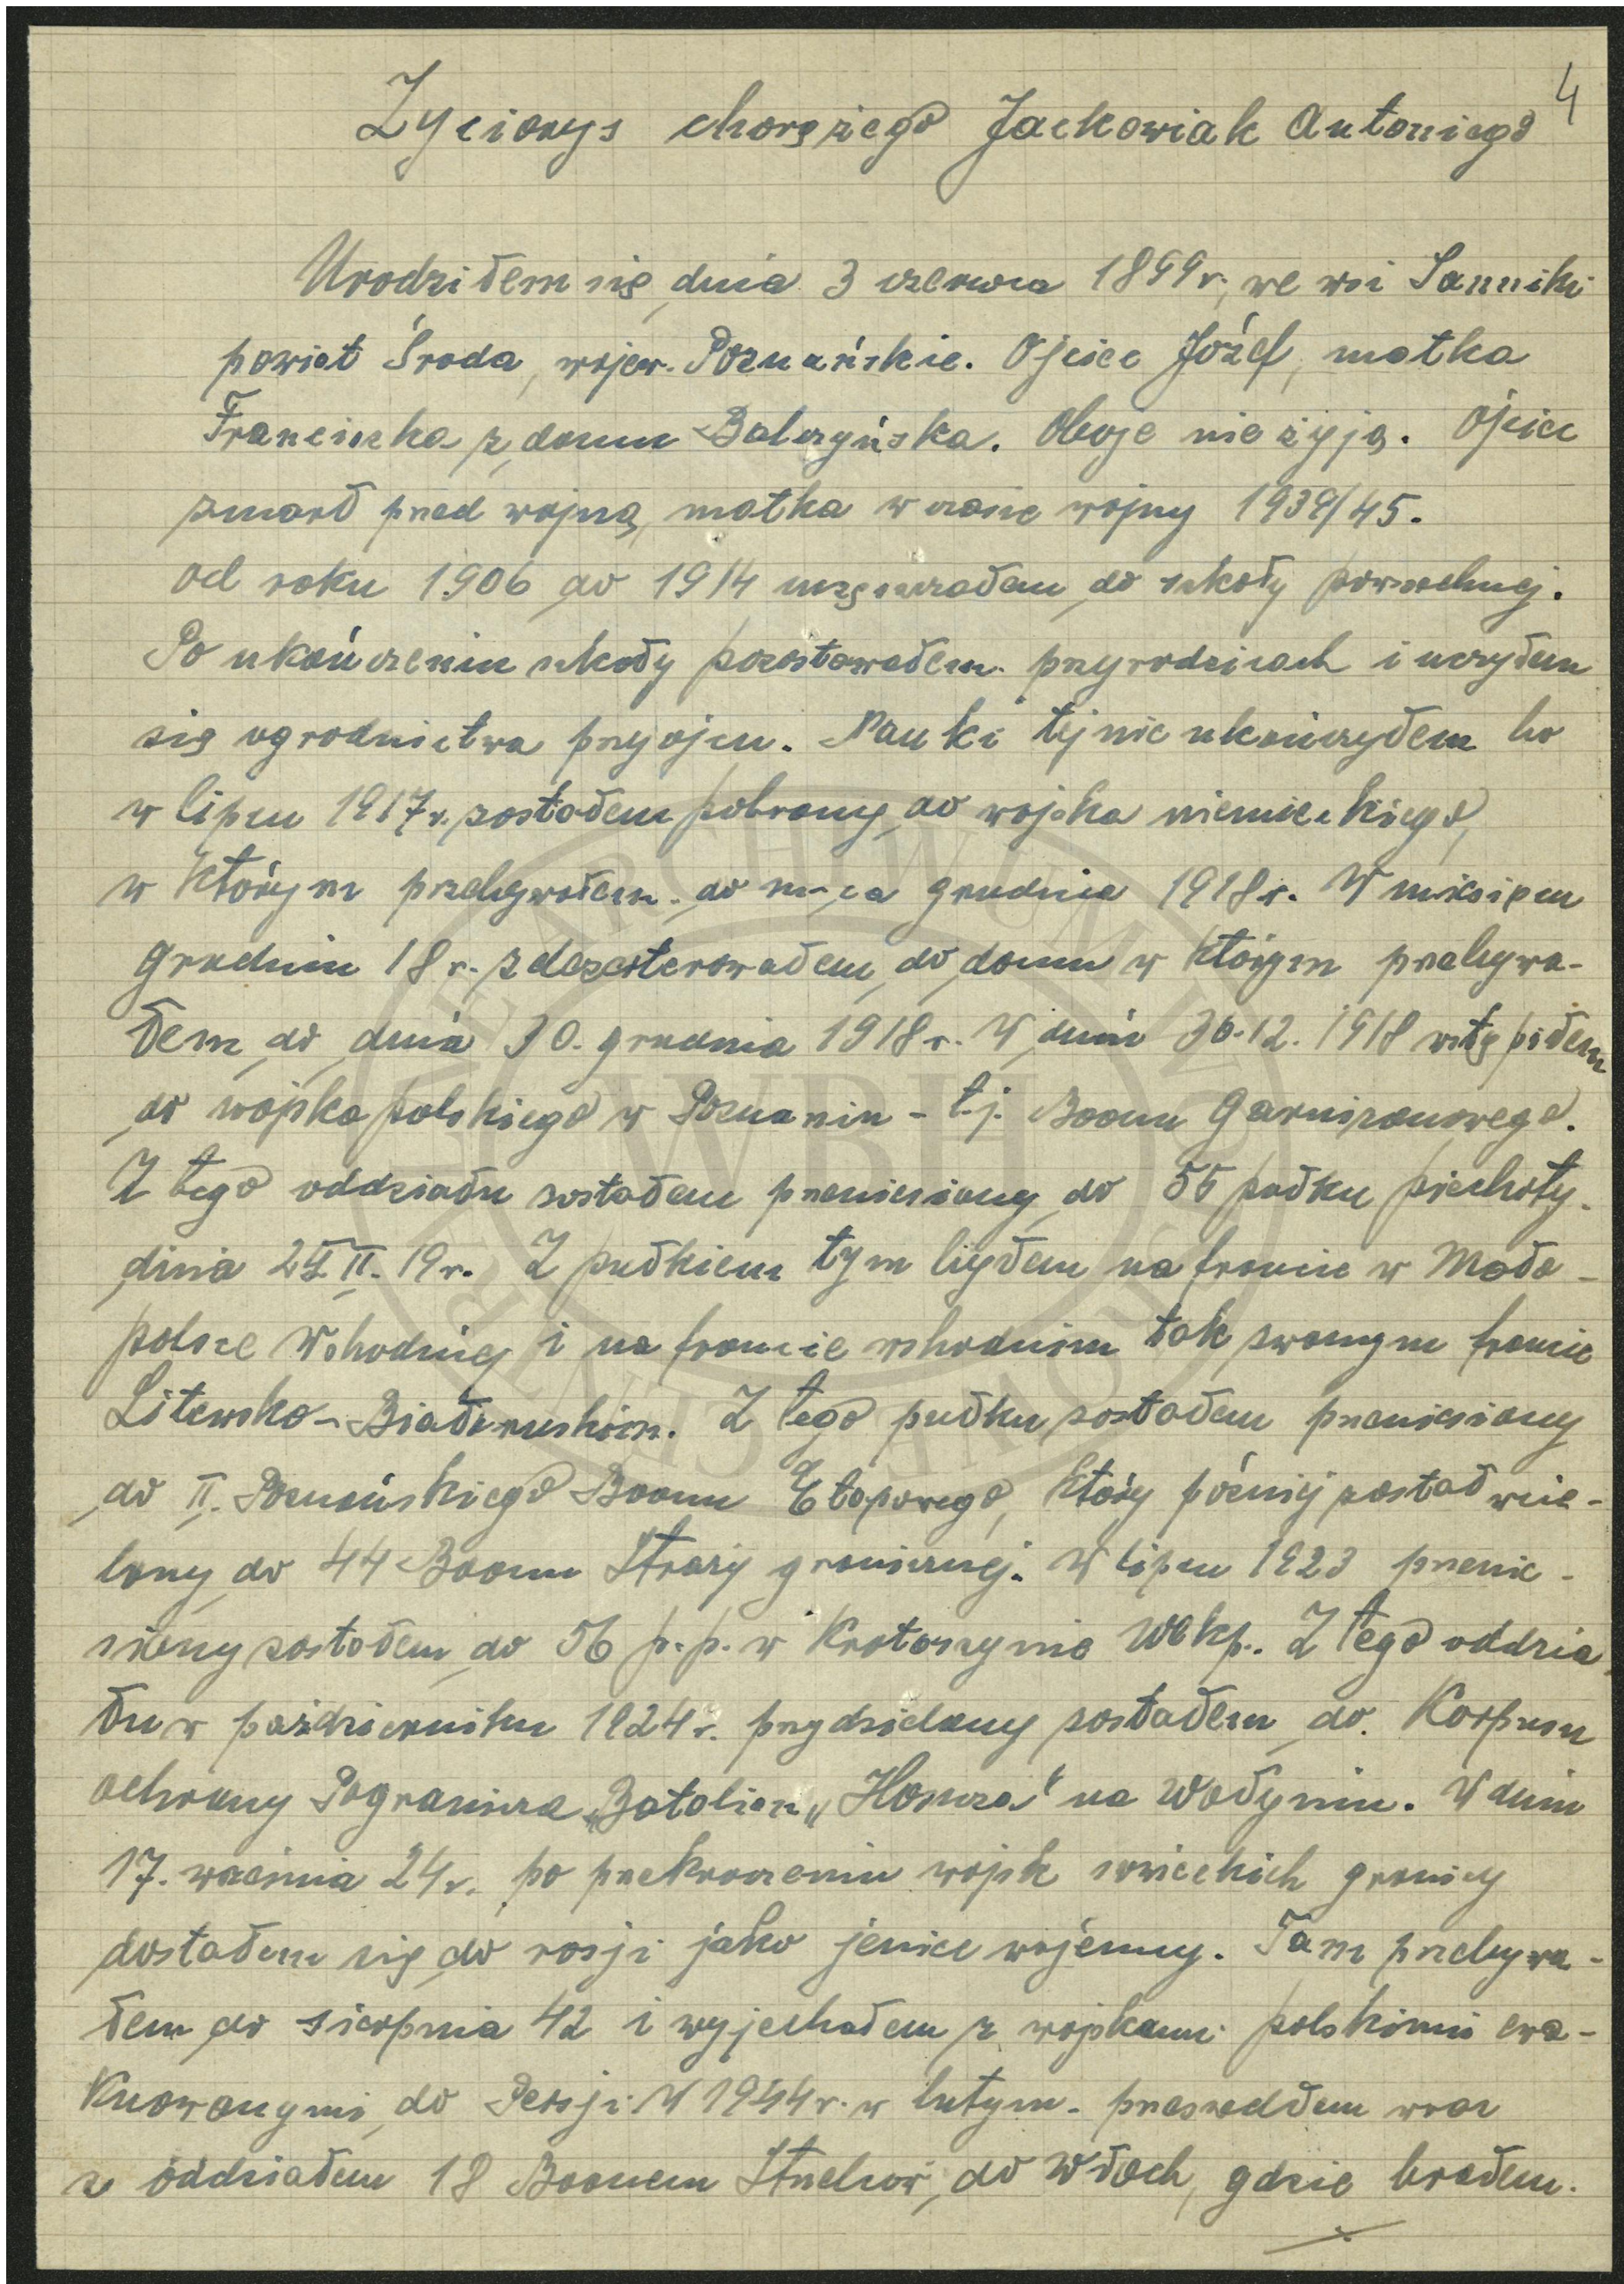 4
Życiorys chorążego Jackowiak Antoniego
Urodziłem się dnia 3 czerwca 1899 r., we wsi Sanniki
powiat Środa, wojew. Poznańskie. Ojciec Józef, matka
Franciszka z domu Balczyńska. Oboje nie żyją. Ojciec
zmarł przed wojną, matka w czasie wojny 1939/45.
od roku 1906 do 1914 uczęszczałem do szkoły powszechnej.
Po ukończeniu szkoły pozostawałem przy rodzicach i uczyłem
się ogrodnictwa przy ojcu. Nauki tej nie ukończyłem bo
w lipcu 1917 r. zostałem pobrany do wojska niemieckiego,
w którym przebywałem do m-ca grudnia 1918 r. W miesiącu
grudniu 18 r. zdezerterowałem do domu w którym przebywa-
łem do dnia 30. grudnia 1918 r. W dniu 30.12.1918 wstąpiłem
do wojska polskiego w Poznaniu - t.j. Baonu Garnizonowego.
Z tego oddziału zostałem przeniesiony do 55 pułku piechoty.
dnia II. 19 r. Z pułkiem tym byłem na froncie w Mało-
polsce Wschodniej i na froncie wschodnim tak zwanym froncie
Litewsko-Białoruskim. Z tego pułku zostałem przeniesiony
do II. Poznańskiego Baonu Etapowego, który później został wcie-
lony do 44 Baonu Straży granicznej. W lipcu 1923 przenie-
siony zostałem do 56 p.p. w Krotoszynie Wlkp. Z tego oddzia
łu w październiku 1924 r. przydzielony zostałem do Korpusu
ochrony Pogranicza „Batalion „Hoszcza" na Wołyniu. W dniu
17. września 24 r. po przekroczeniu wojsk sowieckich granicy
dostałem się do rosji jako jeniec wojenny. Tam przebywa-
łem do sierpnia 42 i wyjechałem z wojskami polskimi ewa-
kuowanymi do Persji W 1944 r. w lutym przeszedłem wraz
z oddziałem 18 Baonem Strzelców, do Włoch, gdzie brałem.
WBH